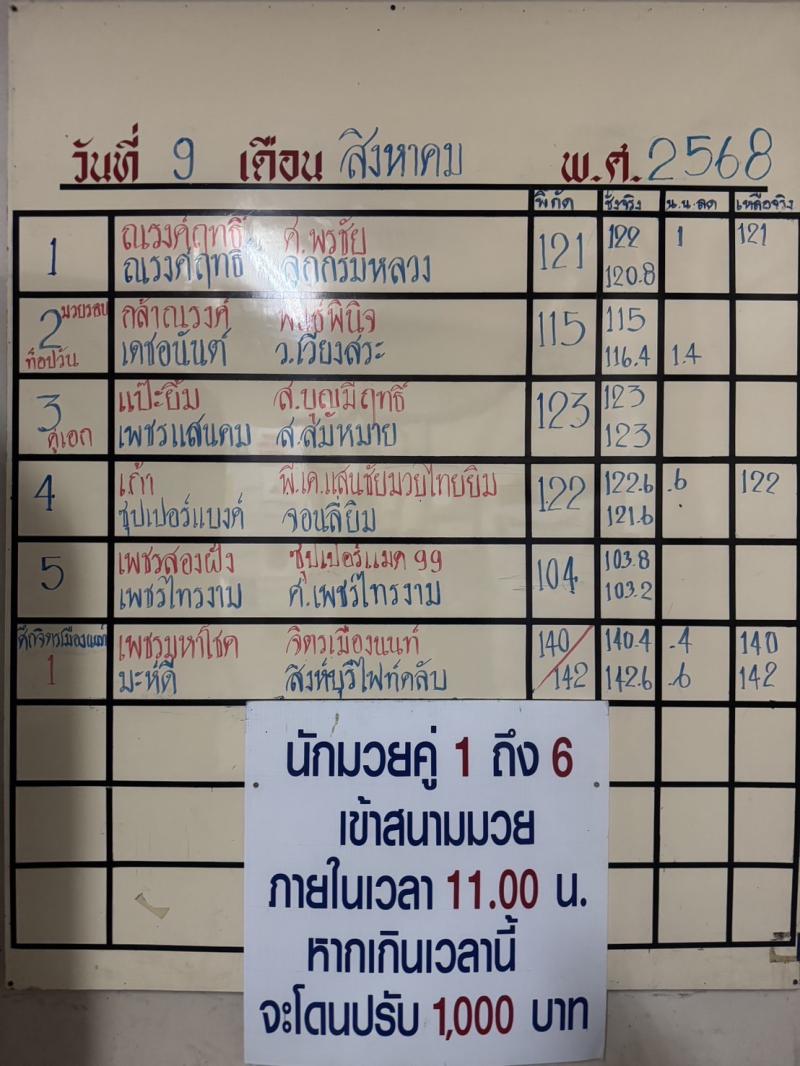 วันที่ 9 เดือน สิงหาคม พ.ศ. 2568
พิกัด ชั่งจริง น.น.ลด เหลือจริง
1 ณรงค์ฤทธิ์ ศ.พรชัย 121 122 1 121
ณรงค์ฤทธิ์ ลูกกรมหลวง 120.8
2 มวยรอบ กล้าณรงค์ พันธ์พินิจ 115 115
ท็อปวัน เดชอนันต์ ว.เวียงสระ 116.4 1.4
3 แป๊ะยิ้ม ส.บุญมีฤทธิ์ 123 123
คู่เอก เพชรแสนคม ส.สมัหมาย 123
4 เก้า พี.เค.แสนชัยมวยไทยยิม 122 122.6 .6 122
ซุปเปอร์แบงค์ จอนลี่ยิม 121.6
5 เพชรสองฝั่ง ซุปเปอร์แมค 99 104 103.8
เพชรไทรงาม ศ.เพชรไทรงาม 103.2
ศึกจิตรเมืองนนท์ เพชรมหาโชค จิตรเมืองนนท์ 140 140.4 .4 140
1 มะห์ดี สิงห์บุรีไฟท์คลับ 142 142.6 .6 142
นักมวยคู่ 1 ถึง 6
เข้าสนามมวย
ภายในเวลา 11.00 น.
หากเกินเวลานี้
จะโดนปรับ 1,000 บาท